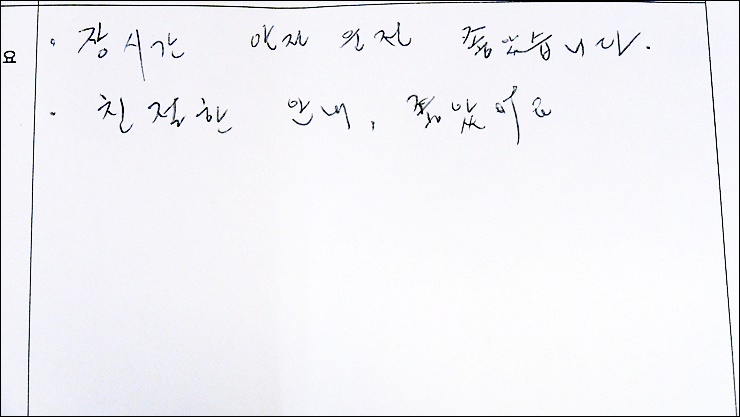 · 장시간 안전 운전 좋았습니다.
· 친절한 안내, 좋았어요
요